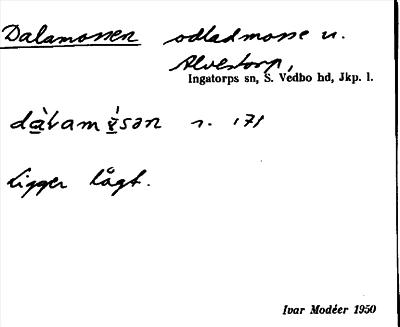 Dalamossen odladmosse u.
Alvestorp,
Ingatorps sn, S. Vedbo hd, Jkp. l.
s. 171
ligger lågt.
Ivar Modéer 1950